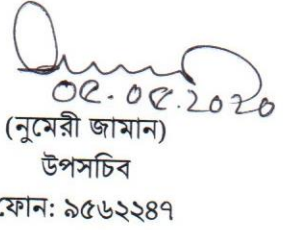 ০৫.০৫.2020
(নুমেরী জামান)
উপসচিব
ফোন: ৯৫৬২২৪৭